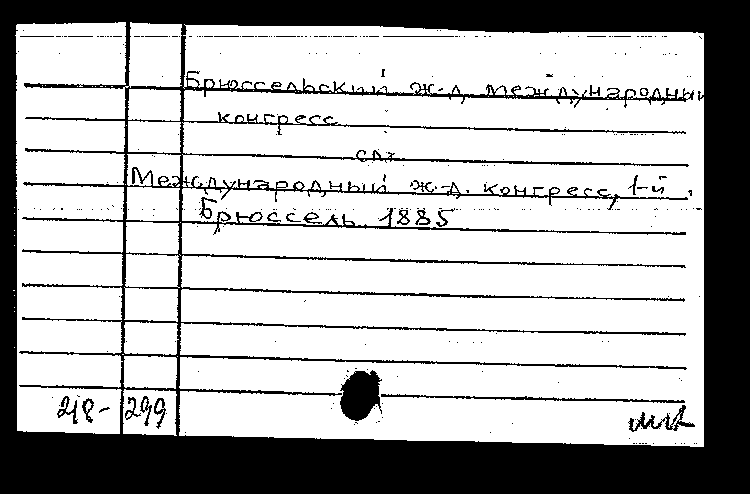 Брюссельский ж-д международный
конгресс
см.
Международный ж-д. конгресс, 1-й.
Брюссель 1885
218-299